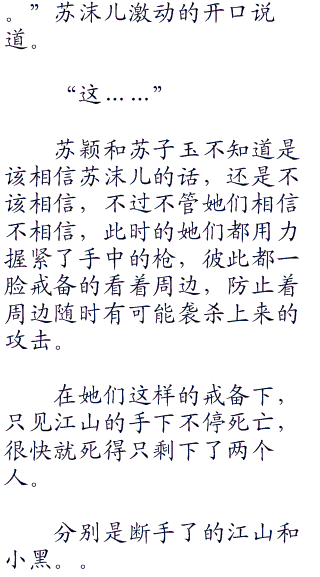 。”苏沫儿激动的开口说
道。
“这……”
苏颖和苏子玉不知道是
该相信苏沫儿的话，还是不
该相信，不过不管她们相信
不相信，此时的她们都用力
握紧了手中的枪，彼此都一
脸戒备的看着周边，防止着
周边随时有可能袭杀上来的
攻击。
在她们这样的戒备下，
只见江山的手下不停死亡，
很快就死得只剩下了两个
人。
分别是断手了的江山和
小黑。。